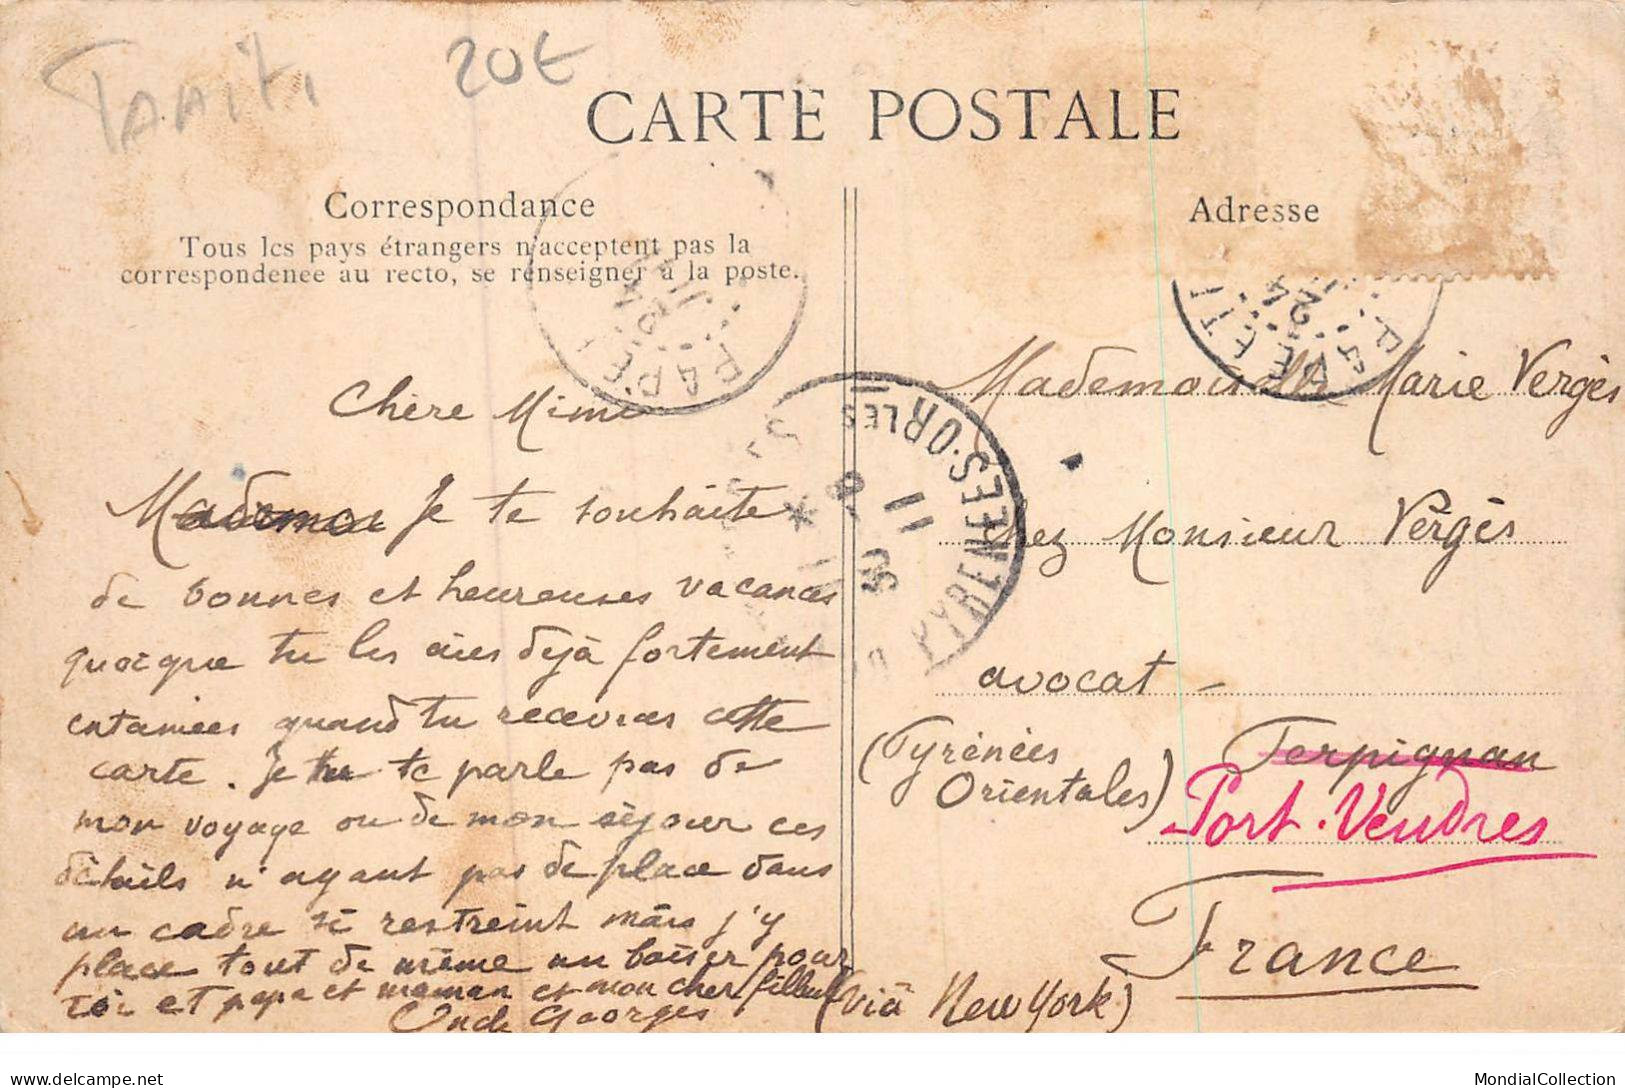 TAAITI
20€
CARTE POSTALE
Correspondance
Tous les pays étrangers n'acceptent pas la
correspondence au recto, se renseigner à la poste.
Adresse
PAPEETE
PAPEETI
24
PYRENEES-ORLES
11
Chère Mimi
Mademoi Je te souhaite
de bonnes et heureuses vacances
quoique tu les aies déjà fortement
entamées quand tu recevras cette
carte. Je te parle pas de
mon voyage ou de mon séjour ces
détails n'ayant pas de place dans
un cadre si restreint mais j'y
place tout de même un baiser pour
toi et papa et maman et mon cher filleul
Oncle Georges
Mademoiselle Marie Vergès
chez Monsieur Vergès
avocat -
(Pyrénées
Orientales)
Perpignan
Port-Vendres
France
(viâ New York)
delcampe.net
MondialCollection